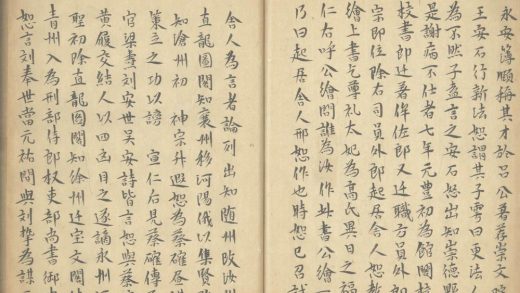 永安簿頗稱其才於呂公著荐崇文院
王安石行新法恕謂其子雱曰更法人
為不然子盍言之安石怒出知崇德縣
是謝病不仕者七年元豐初為館閣校
校書郎迁著作佐郎又迁職方員外郎
宗即位除右司員外郎起居舍人恕教
繪上書乞尊礼太妃為高氏異日之福
仁右呼公繪問誰為汝作此書公繪
乃曰起居舍人邢恕作也時恕已召試
舍人為言者論列出知随州改汝州
直龍圖閣知襄州移河陽俄以集賢
知滄州初 神宗升遐恕為蔡確
策立之功以謗 宣仁右見蔡確傳
官梁燾刘安世吴安詩皆言恕與蔡
黄履交結人以四凶目之逐謫永州
聖初除直龍圖閣知徐州迁宝文閣
青州入為刑部侍郎权吏部尚書
恕言刘奉世當元祐間與刘摯為謀